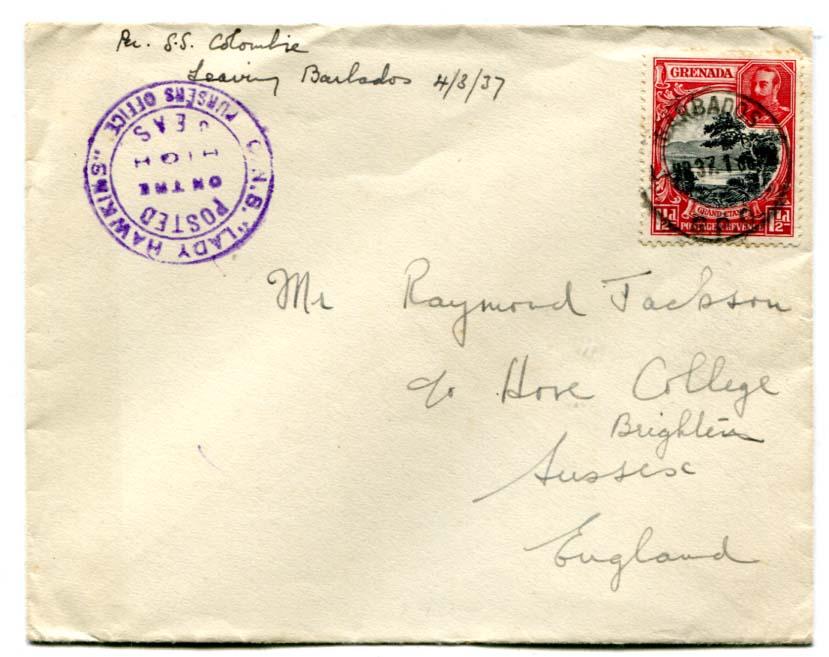 Per. S.S. Colombie
Leaving Barbados 4/3/37
C.N.S. "LADY HAWKINS"
PURSERS OFFICE
POSTED
ON THE
HIGH
SEAS
GRENADA
BARBADOS
37 1
G.P.O.
GRAND ETANG
1½d POSTAGE REVENUE 1½d
Mr Raymond Jackson
c/o Hove College
Brighton
Sussex
England